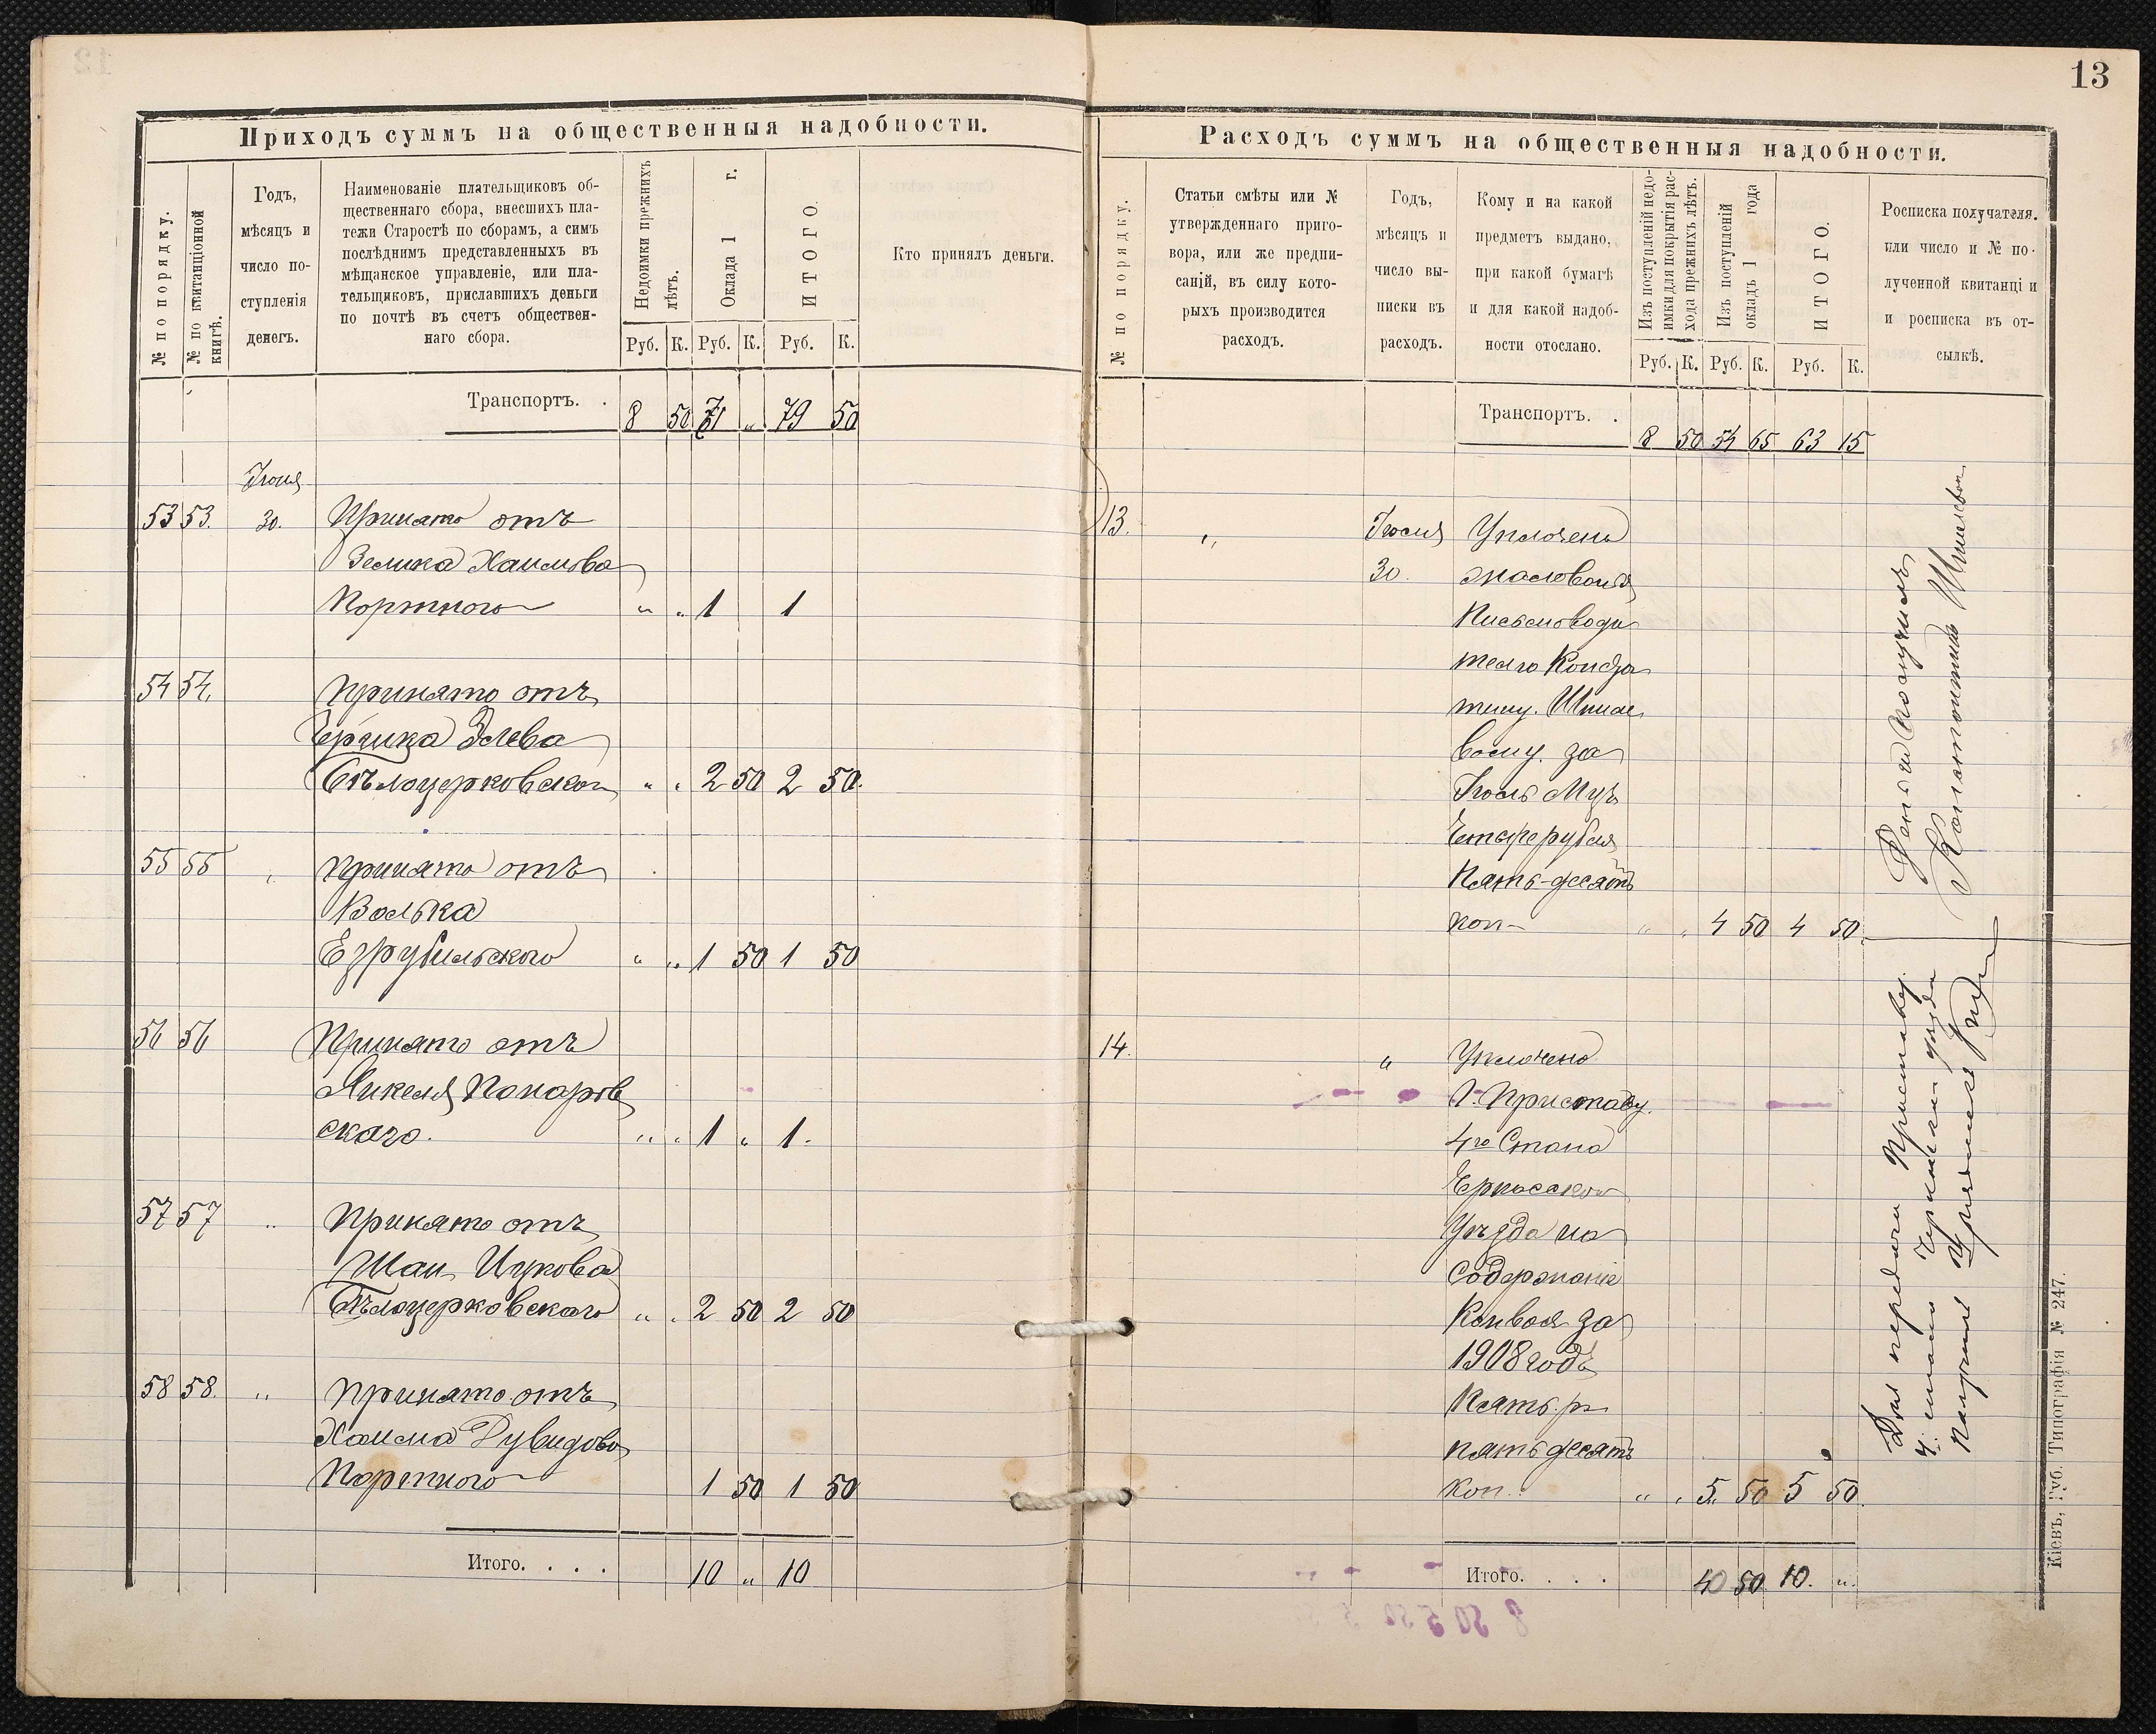 13
Приходъ суммъ на общественныя надобности.
№ по порядку.
№ по квитанціонной книгѣ.
Годъ,
мѣсяцъ и
число по-
ступленія
денегъ.
Наименованіе плательщиковъ об-
щественнаго сбора, внесшихъ пла-
тежи Старостѣ по сборамъ, а симъ
послѣднимъ представленныхъ въ
мѣщанское управленіе, или пла-
тельщиковъ, приславшихъ деньги
по почтѣ въ счетъ обществен-
наго сбора.
Недоимки прежнихъ лѣтъ.
Оклада 1 г.
ИТОГО.
Кто принялъ деньги.
Руб. К. Руб. К. Руб. К.
Транспортъ. . 8 50 71 „ 79 50
Іюля
53 53. 30. Принято отъ
Зелика Хаимова
Портного „ „ 1 1
54 54. Принято отъ
Гершка Элева
Бѣлоцерковског „ „ 2 50 2 50.
55 55 „ Принято отъ
Волька
Езрубильского „ „ 1 50 1 50
56 56 Принято отъ
Янкеля
скаго. „ „ 1 „ 1.
57 57 „ Принято отъ
Ицкова
Бѣлоцерковскаго „ „ 2 50 2 50
58 58. „ Принято отъ
Хаима Дувидова
Портного 1 50 1 50
Итого. . . . 10 „ 10
Расходъ суммъ на общественныя надобности.
№ по порядку.
Статьи смѣты или №
утвержденнаго приго-
вора, или же предпи-
саній, въ силу кото-
рыхъ производится
расходъ.
Годъ,
мѣсяцъ и
число вы-
писки въ
расходъ.
Кому и на какой
предметъ выдано,
при какой бумагѣ
и для какой надоб-
ности отослано.
Изъ поступленій недо-
имки для покрытія рас-
хода прежнихъ лѣтъ.
Изъ поступленій
окладъ 1 года
ИТОГО.
Росписка получателя.
или число и № по-
лученной квитанціи
и росписка въ от-
сылкѣ.
Руб. К. Руб. К. Руб. К.
Транспортъ. . 8 50 54 65 63 15
13. „ Іюля Уплочено
30. жалованя
Письмоводи
телю Конста
тину.
вому за
Іюль Мцъ
Четыре рубля
Пять-десятъ
коп „ „ 4 50 4 50.
Деньги получилъ
Константинъ
14. „ Уплочено
Г. Приставу
4го Стана
Черкасског
Уѣзда на
Содержаніе
Конвоя за
1908 годъ
Пять р.
пятьдесятъ
Коп. „ „ 5 50 5 50.
Для передачи Приставу
4. стана Черкасск. уезда
Получилъ Урядникъ
Итого. . . . 40 50 10. „
Кіевъ, Губ. Типографія № 247.